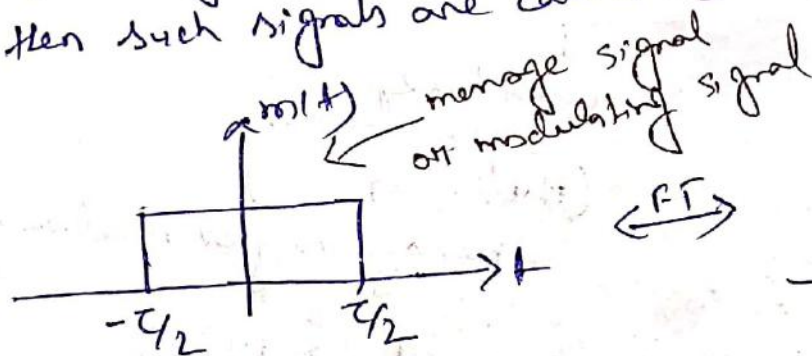 then such signals are
m(t)
message signal
or modulating signal
FT
t
-τ/2
τ/2